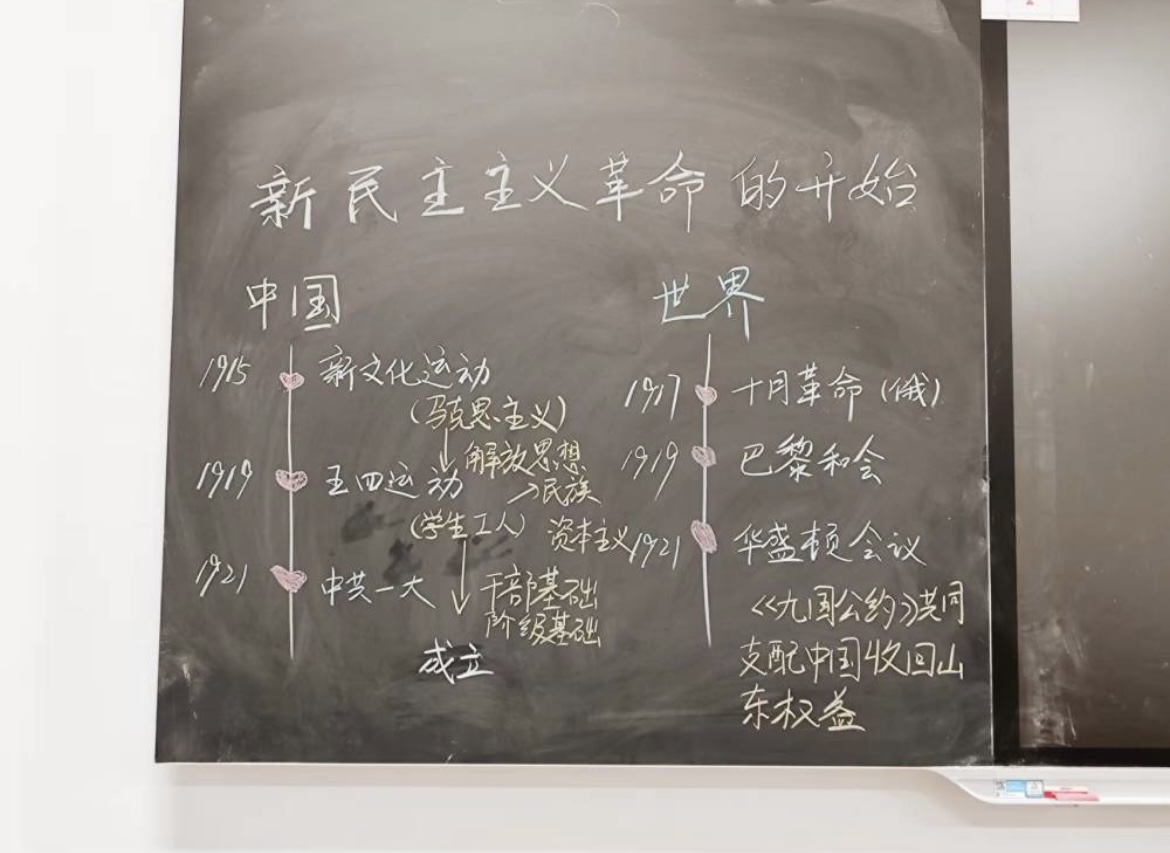 新民主主义革命的开始
中国
1915 新文化运动
(马克思主义)
解放思想
→民族
1919 五四运动
(学生工人) 资本主义
1921 中共一大
干部基础
阶级基础
成立
世界
1917 十月革命(俄)
1919 巴黎和会
1921 华盛顿会议
《九国公约》共同
支配中国收回山
东权益